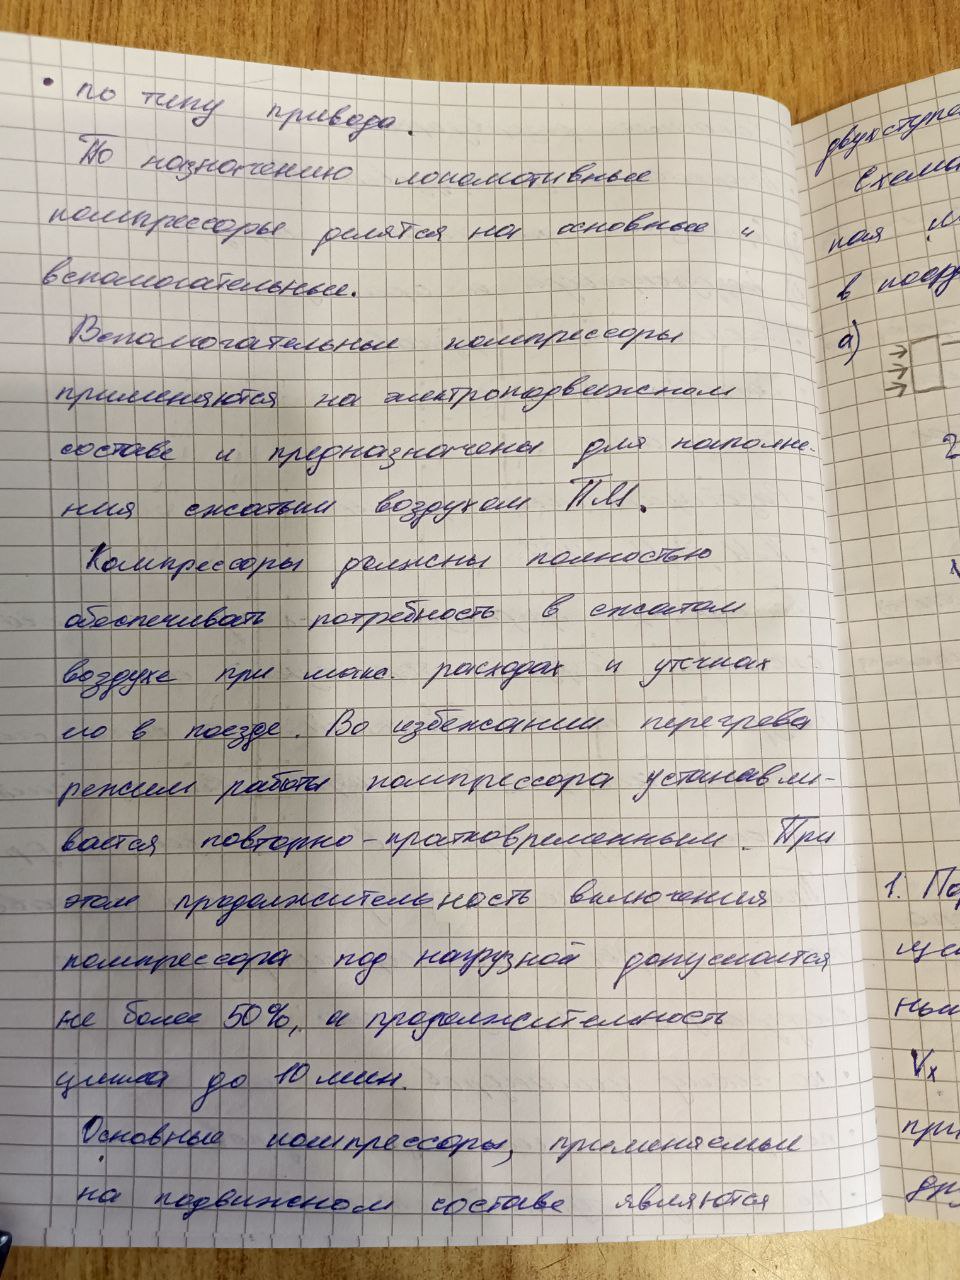 • по типу привода.
По назначению локомотивные
компрессоры делятся на основные и
вспомогательные.
Вспомогательные компрессоры
применяются на электроподвижном
составе и предназначены для наполне-
ния сжатым воздухом ПМ.
Компрессоры должны полностью
обеспечивать потребность в сжатом
воздухе при макс. расходах и утечках
его в поезде. Во избежании перегрева
режим работы компрессора устанавли-
вается повторно-кратковременным. При
этом продолжительность включения
компрессора под нагрузкой допускается
не более 50%, а продолжительность
цикла до 10 мин.
Основные компрессоры, применяемые
на подвижном составе являются
двухступе
Схема
ная
в поо
а)
2
1. По
ным
Vx
при